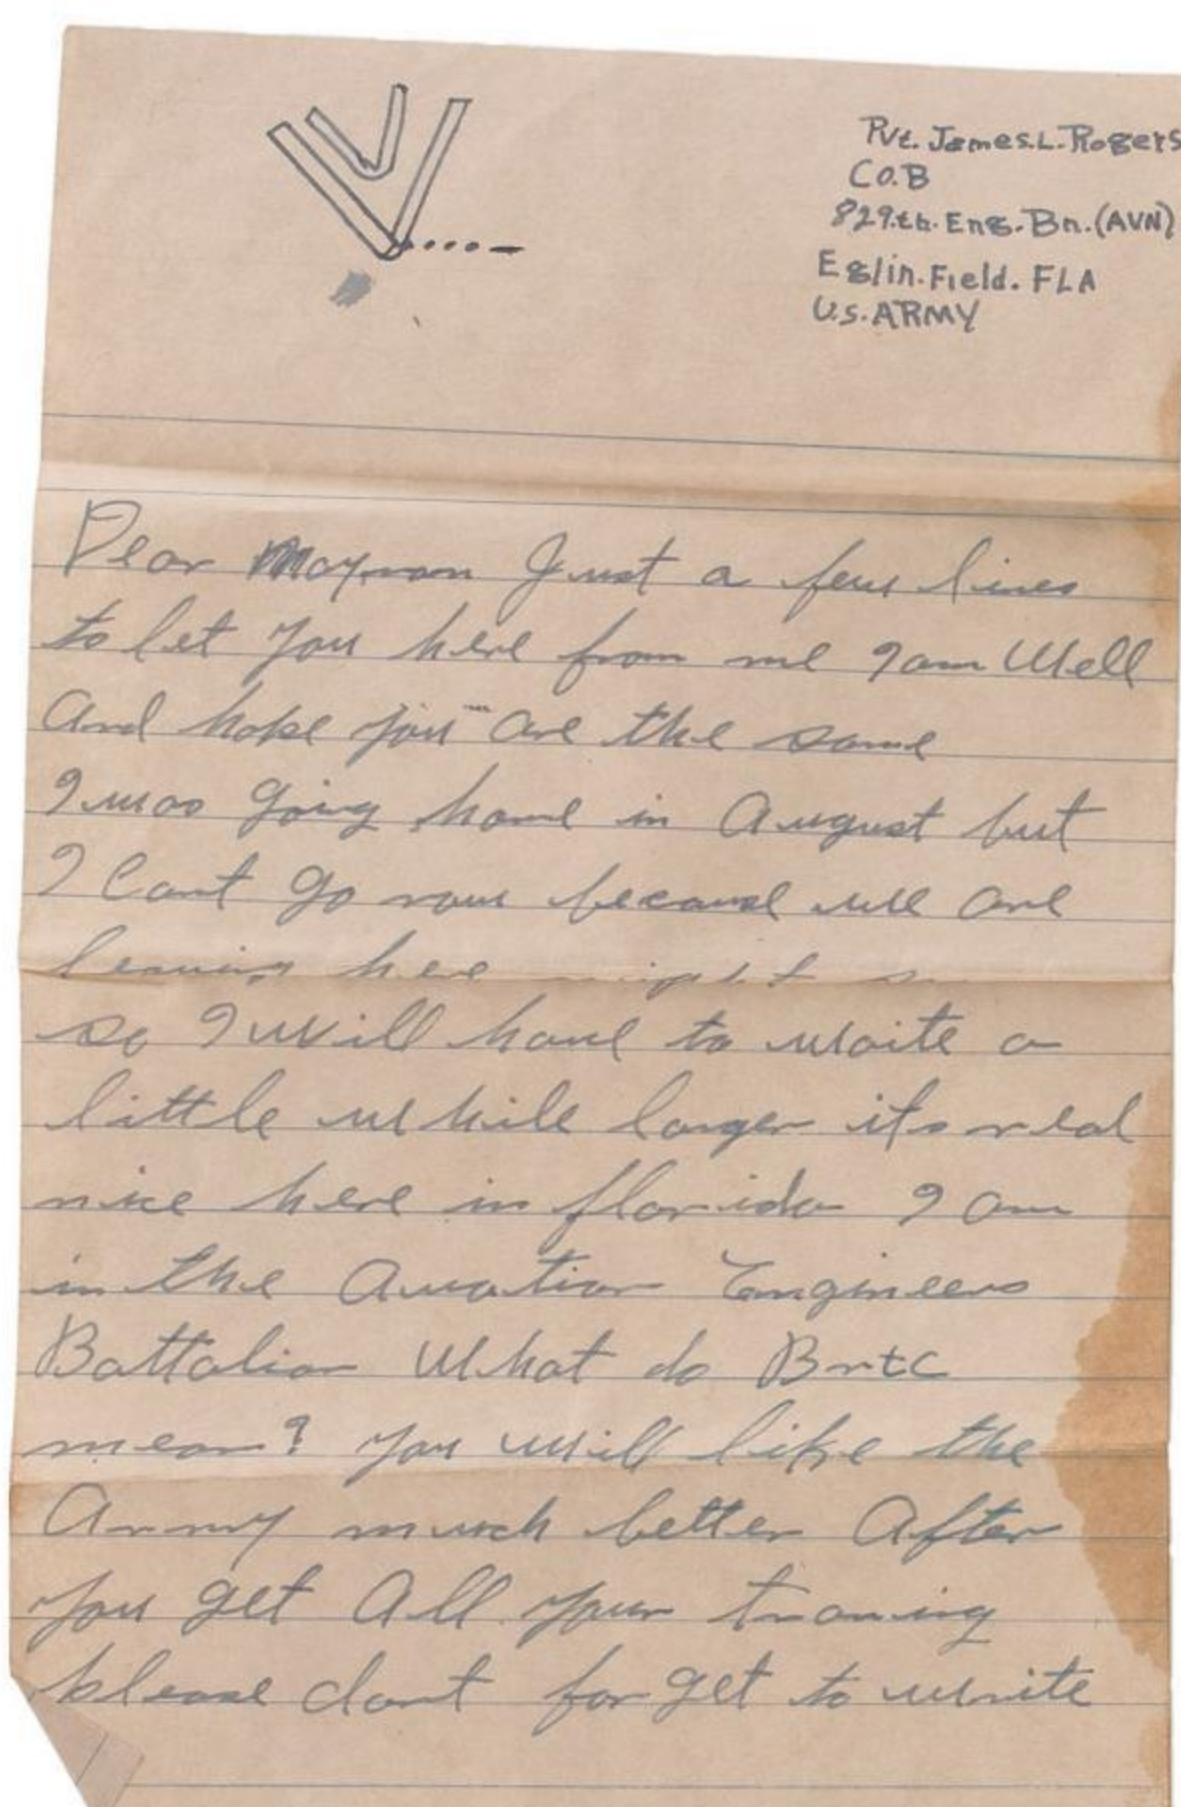 Pvt. James.L.Rogers
CO.B
829.th. Eng. Bn. (AVN)
Eglin. Field. FLA
U.S. ARMY
Dear Just a few lines
to let you here from me I am Well
And hope you are the same
I was going home in August but
I Cant go now because we are
leaving here might
so I will have to waite a
little while longer its real
nice here in florida I am
in the Avation Engineers
Battalion What do Brtc
mean? you will like the
Army much better After
you get All your traning
please dont for get to write